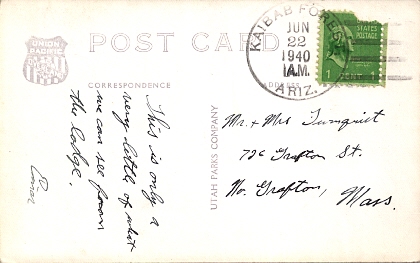 UNION
PACIFIC
POST CARD
CORRESPONDENCE
ADDRESS
KAIBAB FOREST
JUN
22
1940
A.M.
ARIZ.
UNITED STATES
POSTAGE
1
This is only a
very little of what
we can see from
the lodge.
UTAH PARKS COMPANY
Mr. + Mrs Turnquist
726 Grafton St.
No. Grafton,
Mass.